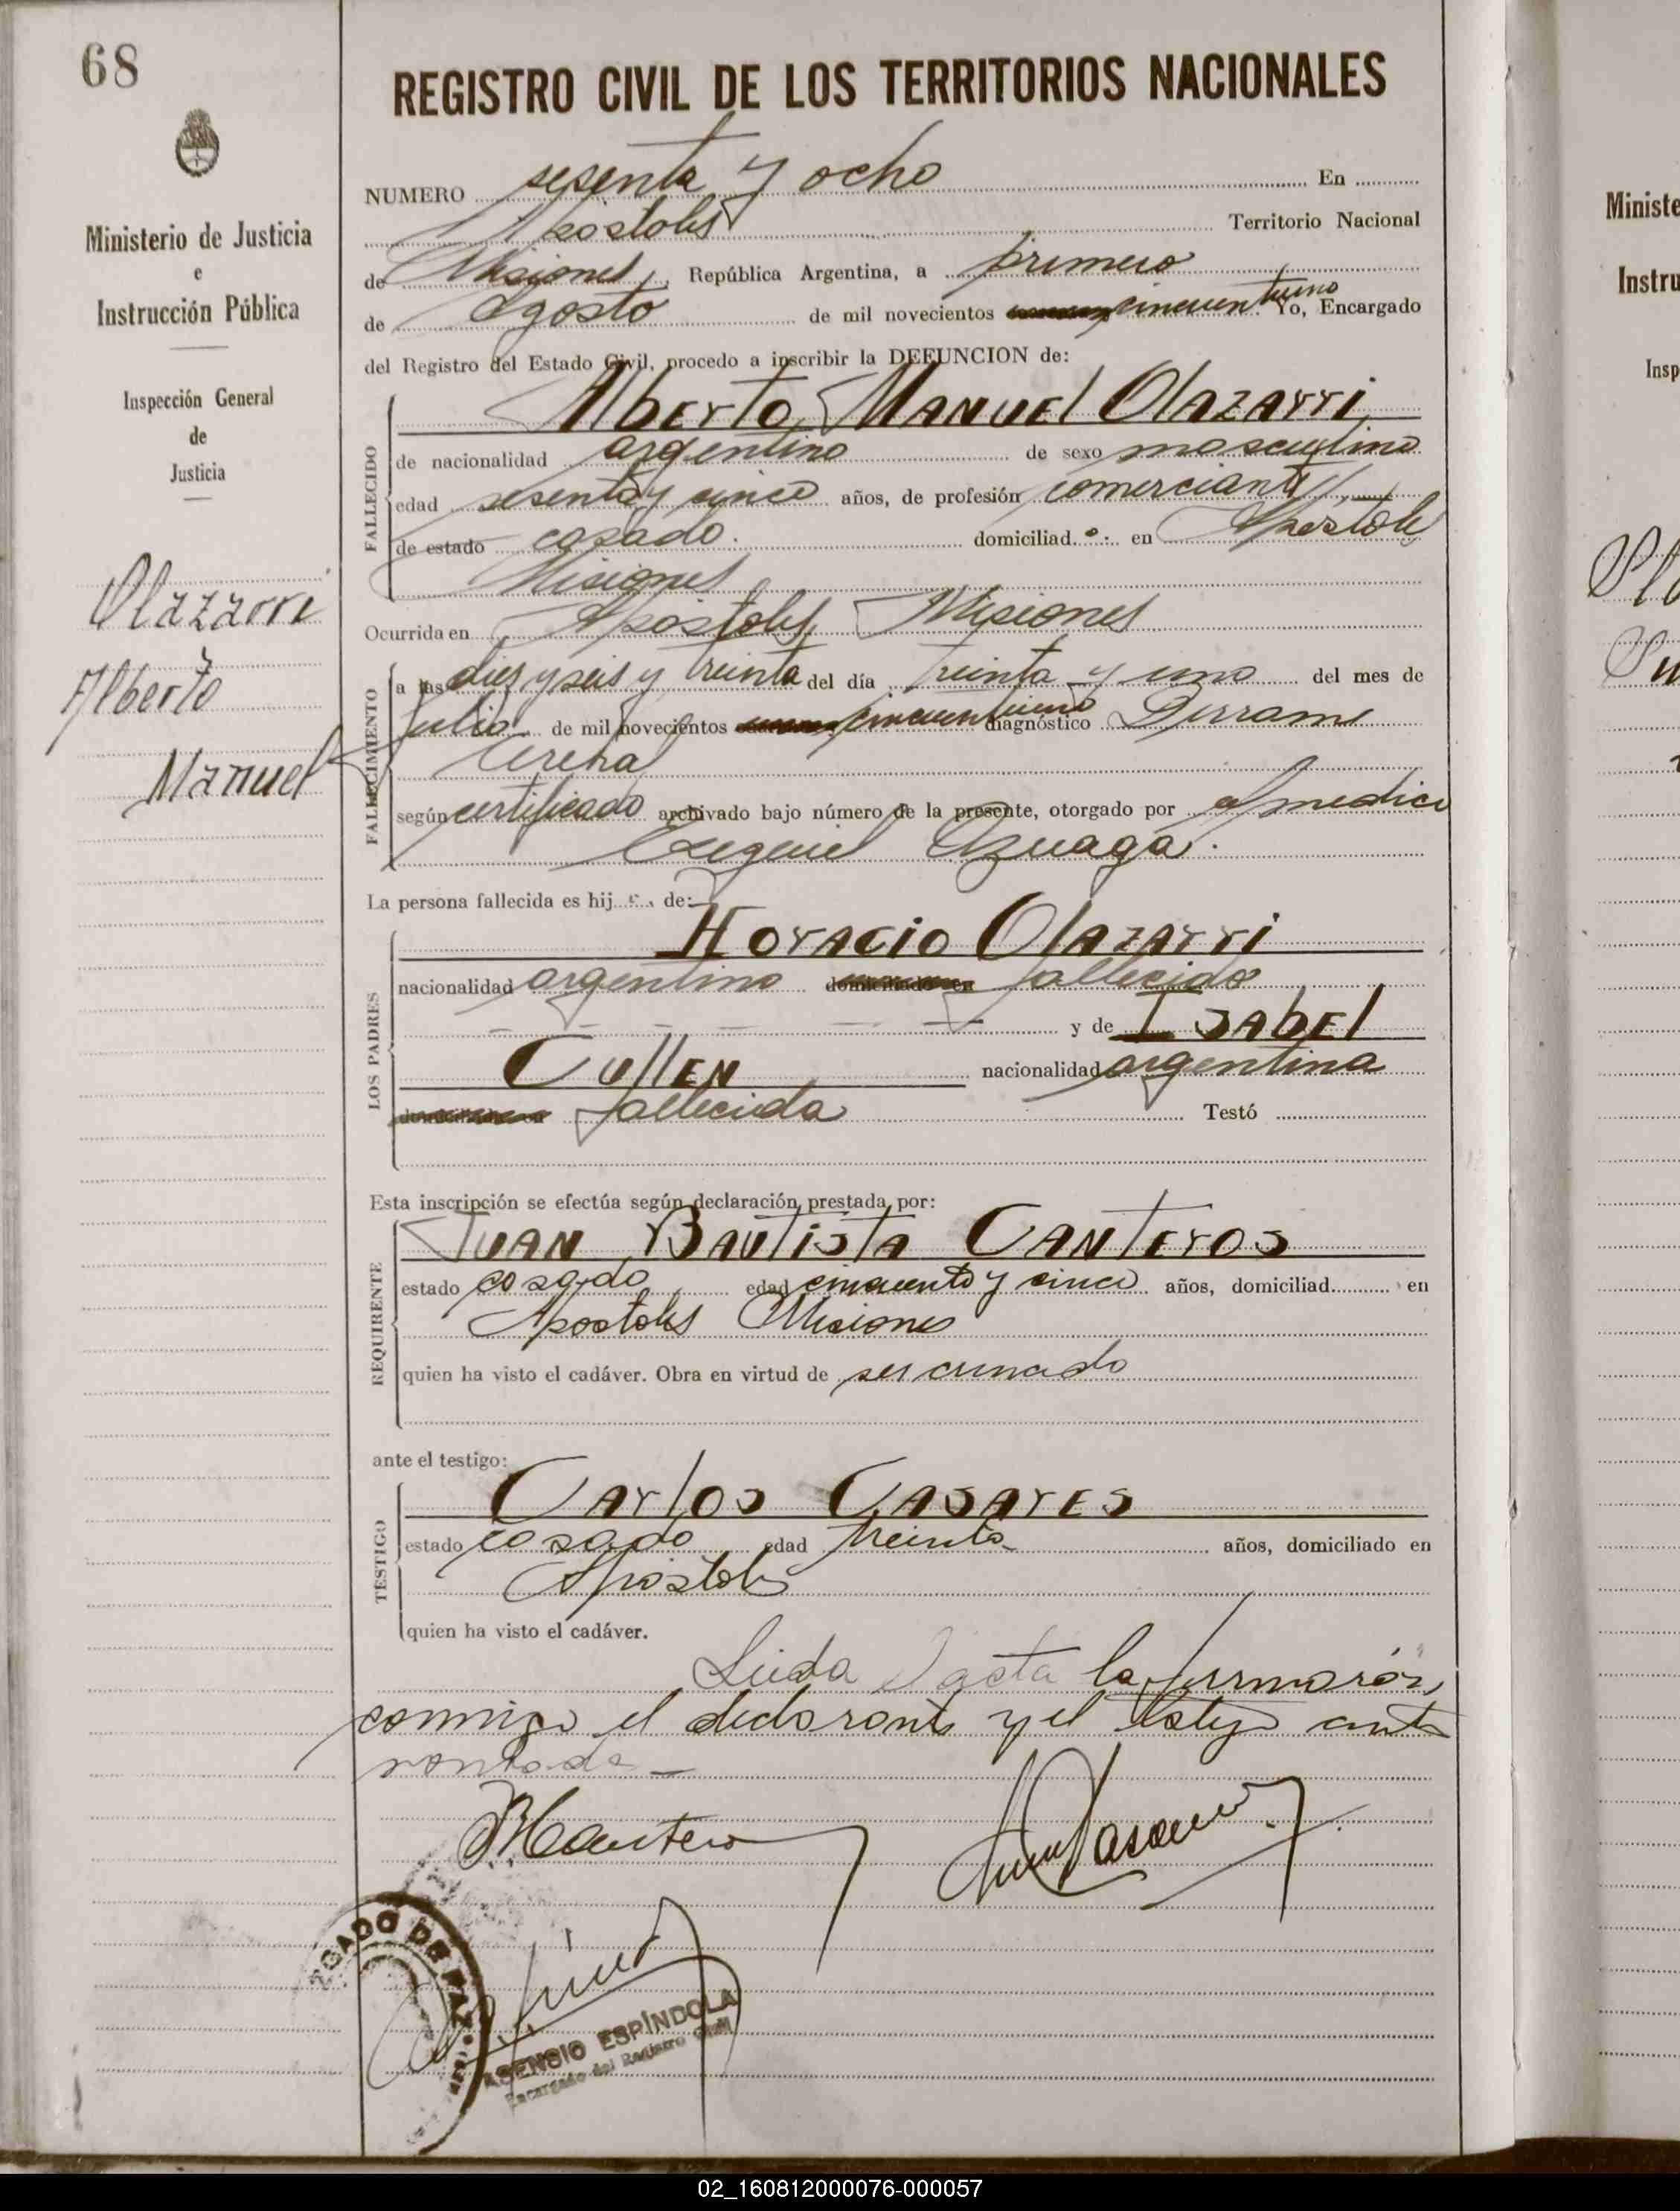 68
REGISTRO CIVIL DE LOS TERRITORIOS NACIONALES
Ministerio de Justicia
e
Instrucción Pública
Inspección General
de
Justicia
Olazarri
Alberto
Manuel
NUMERO sesenta y ocho En
Apostoles Territorio Nacional
de Misiones, República Argentina, a primero
de Agosto de mil novecientos cincuentiuno Yo, Encargado
del Registro del Estado Civil, procedo a inscribir la DEFUNCION de:
Alberto Manuel Olazarri
FALLECIDO
de nacionalidad argentino de sexo masculino
edad sesenta y cinco años, de profesión comerciante
de estado casado. domiciliad o. en Apóstoles
Misiones
Ocurrida en Apóstoles, Misiones
FALLECIMIENTO
a las diez y seis y treinta del día treinta y uno del mes de
Julio de mil novecientos cincuentiuno diagnóstico Derrame
según certificado archivado bajo número de la presente, otorgado por el medico
Ezequiel Azuaga.
La persona fallecida es hij o de:
Horacio Olazarri
LOS PADRES
nacionalidad argentino domiciliado en fallecido
y de Isabel
Cullen nacionalidad argentina
fallecida Testó
Esta inscripción se efectúa según declaración prestada por:
Juan Bautista Canteros
REQUIRENTE
estado casado edad cincuenta y cinco años, domiciliad en
Apostoles Misiones
quien ha visto el cadáver. Obra en virtud de ser cunado
ante el testigo:
Carlos Casares
TESTIGO
estado casado edad treinta años, domiciliado en
Apóstoles
quien ha visto el cadáver.
Leida l acta la firmarón
conmigo el declarante y el testigo
JBCantero
JUZGADO DE PAZ
ASENSIO ESPÍNDOLA
Encargado del Registro Civil
Ministe
Instru
Insp
02_160812000076-000057